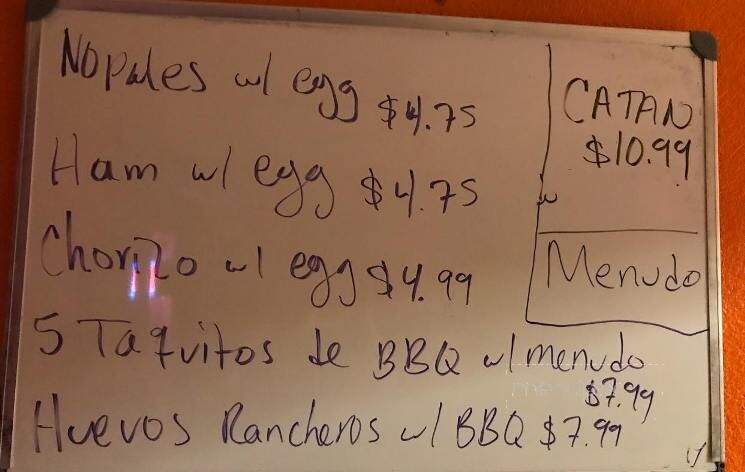 Nopales w/ egg $4.75
Ham w/ egg $4.75
Chorizo w/ egg $4.99
5 Taquitos de BBQ w/menudo
$7.99
Huevos Rancheros w/ BBQ $7.99
CATAN
$10.99
Menudo